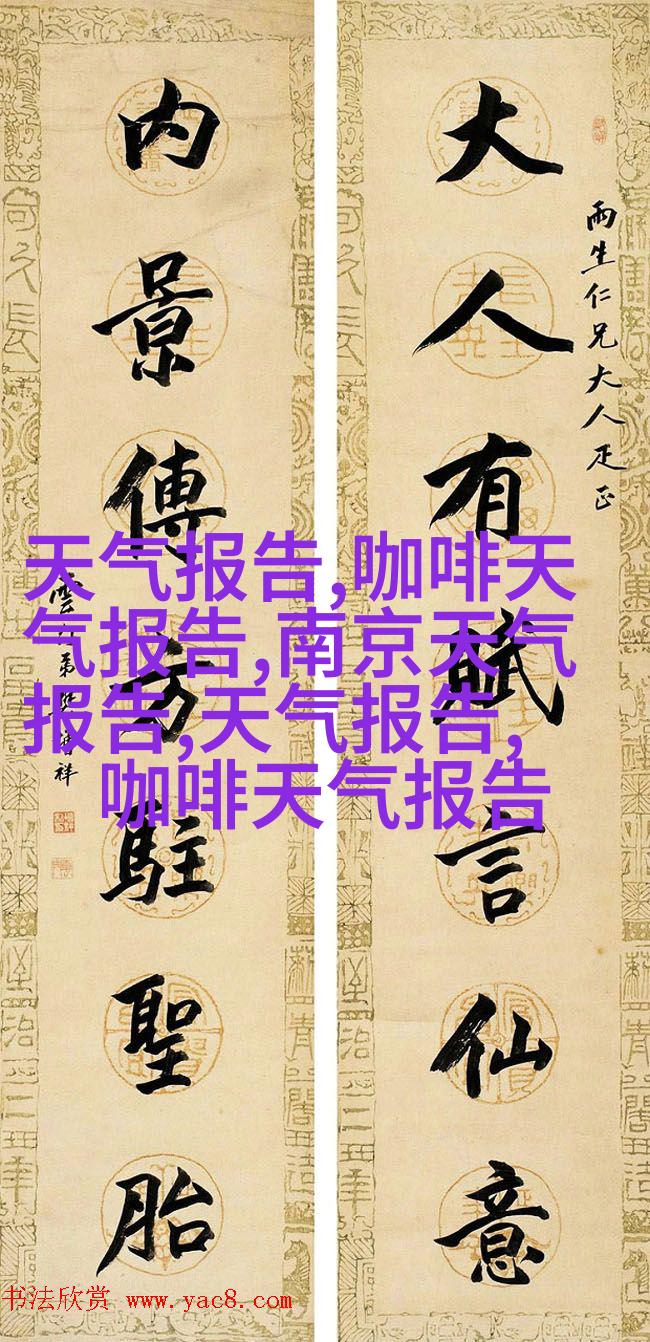 雨生仁兄大人疋正
大人有賦言仙意
内景傳方駐聖胎
天气报告,咖啡天
气报告,南京天气
报告,天气报告,
咖啡天气报告
书法欣赏 www.yac8.com